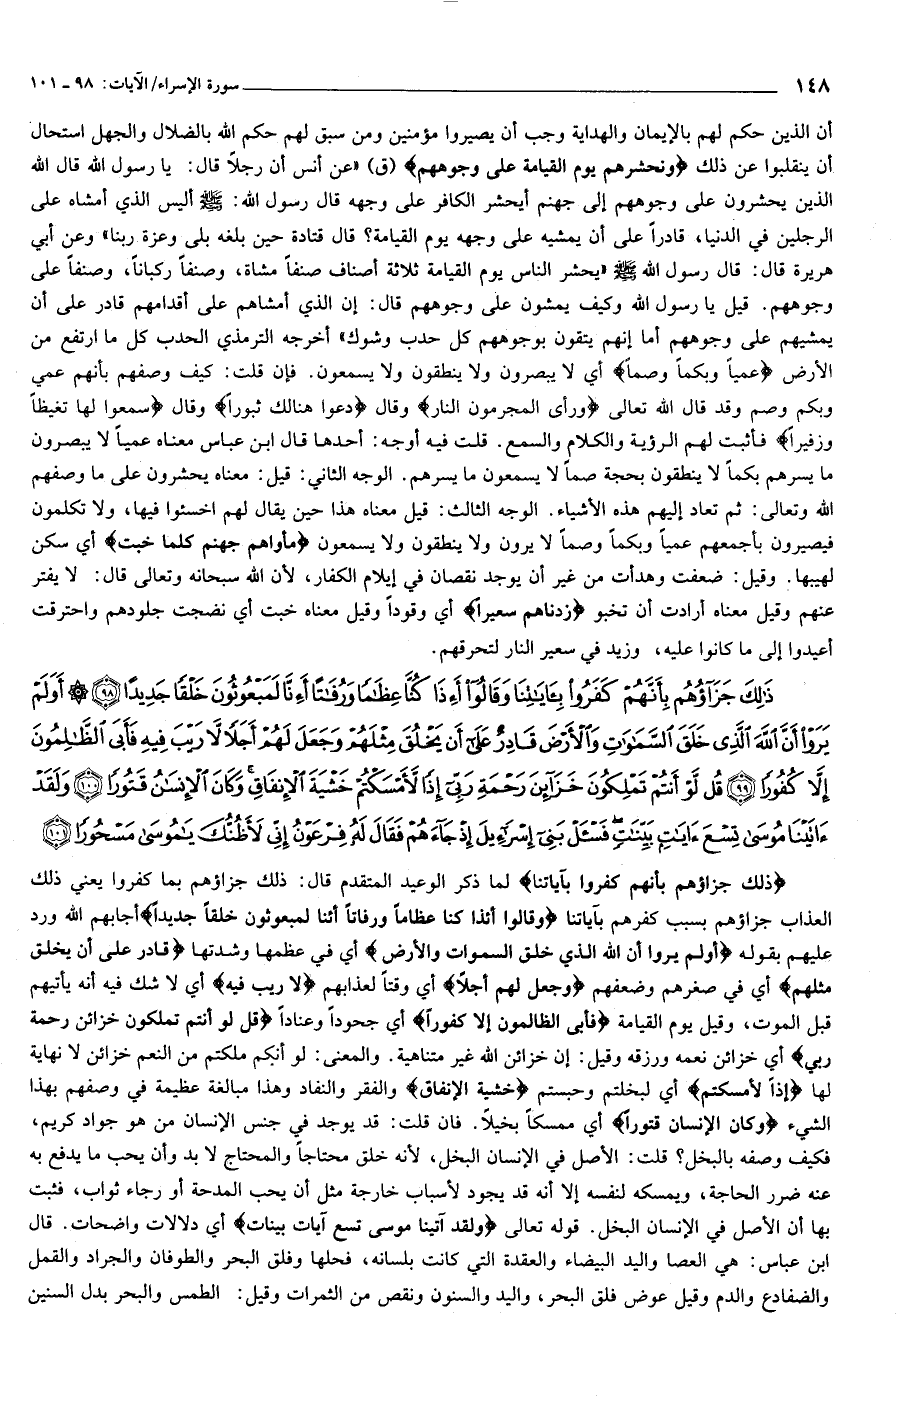 ١٤٨ سورة الإسراء/ الآيات: ٩٨ ـ ١٠١
أن الذين حكم لهم بالإيمان والهداية وجب أن يصيروا مؤمنين ومن سبق لهم حكم الله بالضلال والجهل استحال
أن ينقلبوا عن ذلك ﴿ونحشرهم يوم القيامة على وجوههم﴾ (ق) «عن أنس أن رجلاً قال: يا رسول الله قال الله
الذين يحشرون على وجوههم إلى جهنم أيحشر الكافر على وجهه قال رسول الله: ﷺ أليس الذي أمشاه على
الرجلين في الدنيا، قادراً على أن يمشيه على وجهه يوم القيامة؟ قال قتادة حين بلغه بلى وعزة ربنا» وعن أبي
هريرة قال: قال رسول الله ﷺ «يحشر الناس يوم القيامة ثلاثة أصناف صنفاً مشاة، وصنفاً ركباناً، وصنفاً على
وجوههم. قيل يا رسول الله وكيف يمشون على وجوههم قال: إن الذي أمشاهم على أقدامهم قادر على أن
يمشيهم على وجوههم أما إنهم يتقون بوجوههم كل حدب وشوك» أخرجه الترمذي الحدب كل ما ارتفع من
الأرض ﴿عمياً وبكماً وصماً﴾ أي لا يبصرون ولا ينطقون ولا يسمعون. فإن قلت: كيف وصفهم بأنهم عمي
وبكم وصم وقد قال الله تعالى ﴿ورأى المجرمون النار﴾ وقال ﴿دعوا هنالك ثبوراً﴾ وقال ﴿سمعوا لها تغيظاً
وزفيراً﴾ فأثبت لهم الرؤية والكلام والسمع. قلت فيه أوجه: أحدها قال ابن عباس معناه عمياً لا يبصرون
ما يسرهم بكماً لا ينطقون بحجة صماً لا يسمعون ما يسرهم. الوجه الثاني: قيل: معناه يحشرون على ما وصفهم
الله وتعالى: ثم تعاد إليهم هذه الأشياء. الوجه الثالث: قيل معناه هذا حين يقال لهم اخسئوا فيها، ولا تكلمون
فيصيرون بأجمعهم عمياً وبكماً وصماً لا يرون ولا ينطقون ولا يسمعون ﴿مأواهم جهنم كلما خبت﴾ أي سكن
لهيبها. وقيل: ضعفت وهدأت من غير أن يوجد نقصان في إيلام الكفار، لأن الله سبحانه وتعالى قال: لا يفتر
عنهم وقيل معناه أرادت أن تخبو ﴿زدناهم سعيراً﴾ أي وقوداً وقيل معناه خبت أي نضجت جلودهم واحترقت
أعيدوا إلى ما كانوا عليه، وزيد في سعير النار لتحرقهم.
ذَٰلِكَ جَزَآؤُهُم بِأَنَّهُمْ كَفَرُوا۟ بِـَٔايَـٰتِنَا وَقَالُوٓا۟ أَءِذَا كُنَّا عِظَـٰمًا وَرُفَـٰتًا أَءِنَّا لَمَبْعُوثُونَ خَلْقًا جَدِيدًا ﴿٩٨﴾ ۞ أَوَلَمْ
يَرَوْا۟ أَنَّ ٱللَّهَ ٱلَّذِى خَلَقَ ٱلسَّمَـٰوَٰتِ وَٱلْأَرْضَ قَادِرٌ عَلَىٰٓ أَن يَخْلُقَ مِثْلَهُمْ وَجَعَلَ لَهُمْ أَجَلًا لَّا رَيْبَ فِيهِ فَأَبَى ٱلظَّـٰلِمُونَ
إِلَّا كُفُورًا ﴿٩٩﴾ قُل لَّوْ أَنتُمْ تَمْلِكُونَ خَزَآئِنَ رَحْمَةِ رَبِّىٓ إِذًا لَّأَمْسَكْتُمْ خَشْيَةَ ٱلْإِنفَاقِ ۚ وَكَانَ ٱلْإِنسَـٰنُ قَتُورًا ﴿١٠٠﴾ وَلَقَدْ
ءَاتَيْنَا مُوسَىٰ تِسْعَ ءَايَـٰتٍۭ بَيِّنَـٰتٍ ۖ فَسْـَٔلْ بَنِىٓ إِسْرَٰٓءِيلَ إِذْ جَآءَهُمْ فَقَالَ لَهُۥ فِرْعَوْنُ إِنِّى لَأَظُنُّكَ يَـٰمُوسَىٰ مَسْحُورًا ﴿١٠١﴾
﴿ذلك جزاؤهم بأنهم كفروا بآياتنا﴾ لما ذكر الوعيد المتقدم قال: ذلك جزاؤهم بما كفروا يعني ذلك
العذاب جزاؤهم بسبب كفرهم بآياتنا ﴿وقالوا أئذا كنا عظاماً ورفاتاً أئنا لمبعوثون خلقاً جديداً﴾أجابهم الله ورد
عليهم بقوله ﴿أولم يروا أن الله الذي خلق السموات والأرض﴾ أي في عظمها وشدتها ﴿قادر على أن يخلق
مثلهم﴾ أي في صغرهم وضعفهم ﴿وجعل لهم أجلاً﴾ أي وقتاً لعذابهم ﴿لا ريب فيه﴾ أي لا شك فيه أنه يأتيهم
قبل الموت، وقيل يوم القيامة ﴿فأبى الظالمون إلا كفوراً﴾ أي جحوداً وعناداً ﴿قل لو أنتم تملكون خزائن رحمة
ربي﴾ أي خزائن نعمه ورزقه وقيل: إن خزائن الله غير متناهية. والمعنى: لو أنكم ملكتم من النعم خزائن لا نهاية
لها ﴿إذاً لأمسكتم﴾ أي لبخلتم وحبستم ﴿خشية الإنفاق﴾ والفقر والنفاد وهذا مبالغة عظيمة في وصفهم بهذا
الشيء ﴿وكان الإنسان قتوراً﴾ أي ممسكاً بخيلاً. فان قلت: قد يوجد في جنس الإنسان من هو جواد كريم،
فكيف وصفه بالبخل؟ قلت: الأصل في الإنسان البخل، لأنه خلق محتاجاً والمحتاج لا بد وأن يحب ما يدفع به
عنه ضرر الحاجة، ويمسكه لنفسه إلا أنه قد يجود لأسباب خارجة مثل أن يحب المدحة أو رجاء ثواب، فثبت
بها أن الأصل في الإنسان البخل. قوله تعالى ﴿ولقد آتينا موسى تسع آيات بينات﴾ أي دلالات واضحات. قال
ابن عباس: هي العصا واليد البيضاء والعقدة التي كانت بلسانه، فحلها وفلق البحر والطوفان والجراد والقمل
والضفادع والدم وقيل عوض فلق البحر، واليد والسنون ونقص من الثمرات وقيل: الطمس والبحر بدل السنين